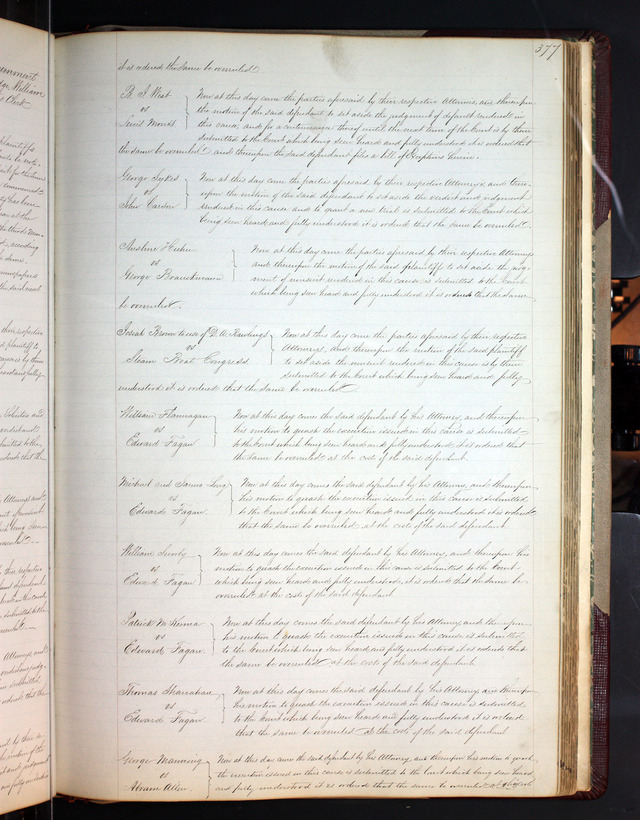 377
it is ordered the same be overruled
R. I. West
vs
Now at this day came the parties aforesaid by their respective Attorneys, and thereupon
the motion of the said defendant to set aside the judgment of default rendered in
this cause, and for a continuance thereof until the next term of the Court is by them
submitted to the Court which being seen heard and fully understood it is ordered that
the same be overruled and thereupon the said defendant files a bill of Exceptions herein.
George Sykes
vs
John Carson
Now at this day came the parties aforesaid by their respective Attorneys, and there-
upon the motion of the said defendant to set aside the verdict and judgment
rendered in this cause and to grant a new trial is submitted to the Court which
being seen heard and fully understood it is ordered that the same be overruled.
vs
George
Now at this day came the parties aforesaid by their respective Attorneys
and thereupon the motion of the said plaintiff to set aside the judg-
ment of nonsuit rendered in this cause is submitted to the Court
which being seen heard and fully understood it is ordered that the same
be overruled.
Josiah Brown to use of D. W.
vs
Steam Boat Congress
Now at this day came the parties aforesaid by their respective
Attorneys, and thereupon the motion of the said plaintiff
to set aside the nonsuit rendered in this cause is by them
submitted to the Court which being seen heard and fully
understood it is ordered that the same be overruled
William Flannagan
vs
Edward Fagan
Now at this day comes the said defendant by his Attorney, and thereupon
his motion to quash the execution issued in this cause is submitted
to the Court which being seen heard and fully understood it is ordered that
the same be overruled at the cost of the said defendant.
Michael and James
vs
Edward Fagan
Now at this day comes the said defendant by his Attorney, and thereupon
his motion to quash the execution issued in this cause is submitted
to the Court which being seen heard and fully understood it is ordered
that the same be overruled at the cost of the said defendant
William
vs
Edward Fagan
Now at this day comes the said defendant by his Attorney, and thereupon his
motion to quash the execution issued in this cause is submitted to the Court
which being seen heard and fully understood, it is ordered that the same be
overruled at the costs of the said defendant
Patrick
vs
Edward Fagan
Now at this day comes the said defendant by his Attorney and thereupon
his motion to quash the execution issued in this cause is submitted
to the Court which being seen heard and fully understood it is ordered that
the same be overruled at the costs of the said defendant.
Thomas Shanahan
vs
Edward Fagan
Now at this day comes the said defendant by his Attorney, and thereupon
his motion to quash the execution issued in this cause is submitted
to the Court which being seen heard and fully understood it is ordered
that the same be overruled at the cost of the said defendant
George Manning
vs
Abram Allen
Now at this day comes the said defendant by his Attorney, and thereupon his motion to quash
the execution issued in this cause is submitted to the Court which being seen heard
and fully understood it is ordered that the same be overruled at